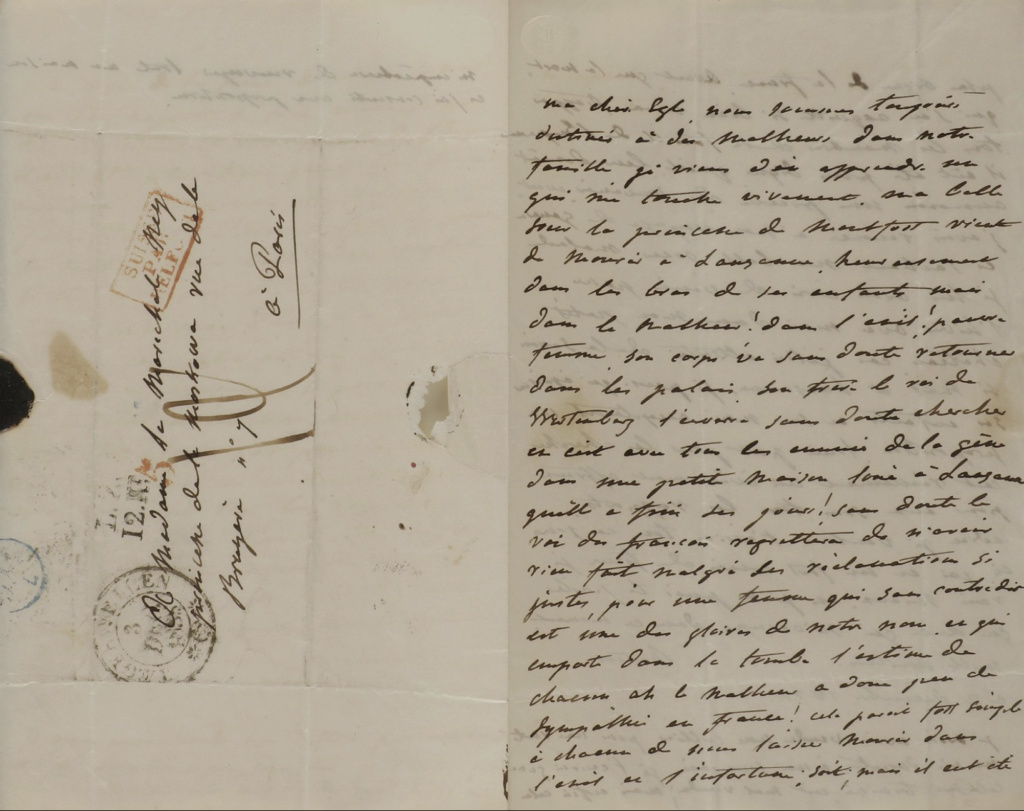 Madame la Marechale Ney
princesse de la moskowa rue de la
Bruyère n° 7
à Paris
12
3
DEC
ma chere Eglé, nous sommes toujours
destinés à des malheurs dans notre
famille je viens d'en apprendre un
qui me touche vivement. ma belle
soeur la princesse de Montfort vient
de mourir à Lausanne, heureusement
dans les bras de ses enfants mais
dans le malheur! dans l'exil! pauvre
femme, son corps va sans doute retourner
dans les palais, son frere le roi de
Wurtemberg l'enverra sans doute chercher
et c'est avec tous les ennuis de la gêne
dans une petite maison louée à Lausanne
qu'elle a fini ses jours! sans doute le
roi des françois regrettera de n'avoir
rien fait malgré ses réclamations si
justes, pour une femme qui sans contredit
est une des gloires de notre nom et qui
emporte dans la tombe l'estime de
chacun ah le malheur a donc peu de
sympathie en france! cela parait tout simple
à chacun de nous laisser mourir dans
l'exil et l'infortune, soit, mais il eut été